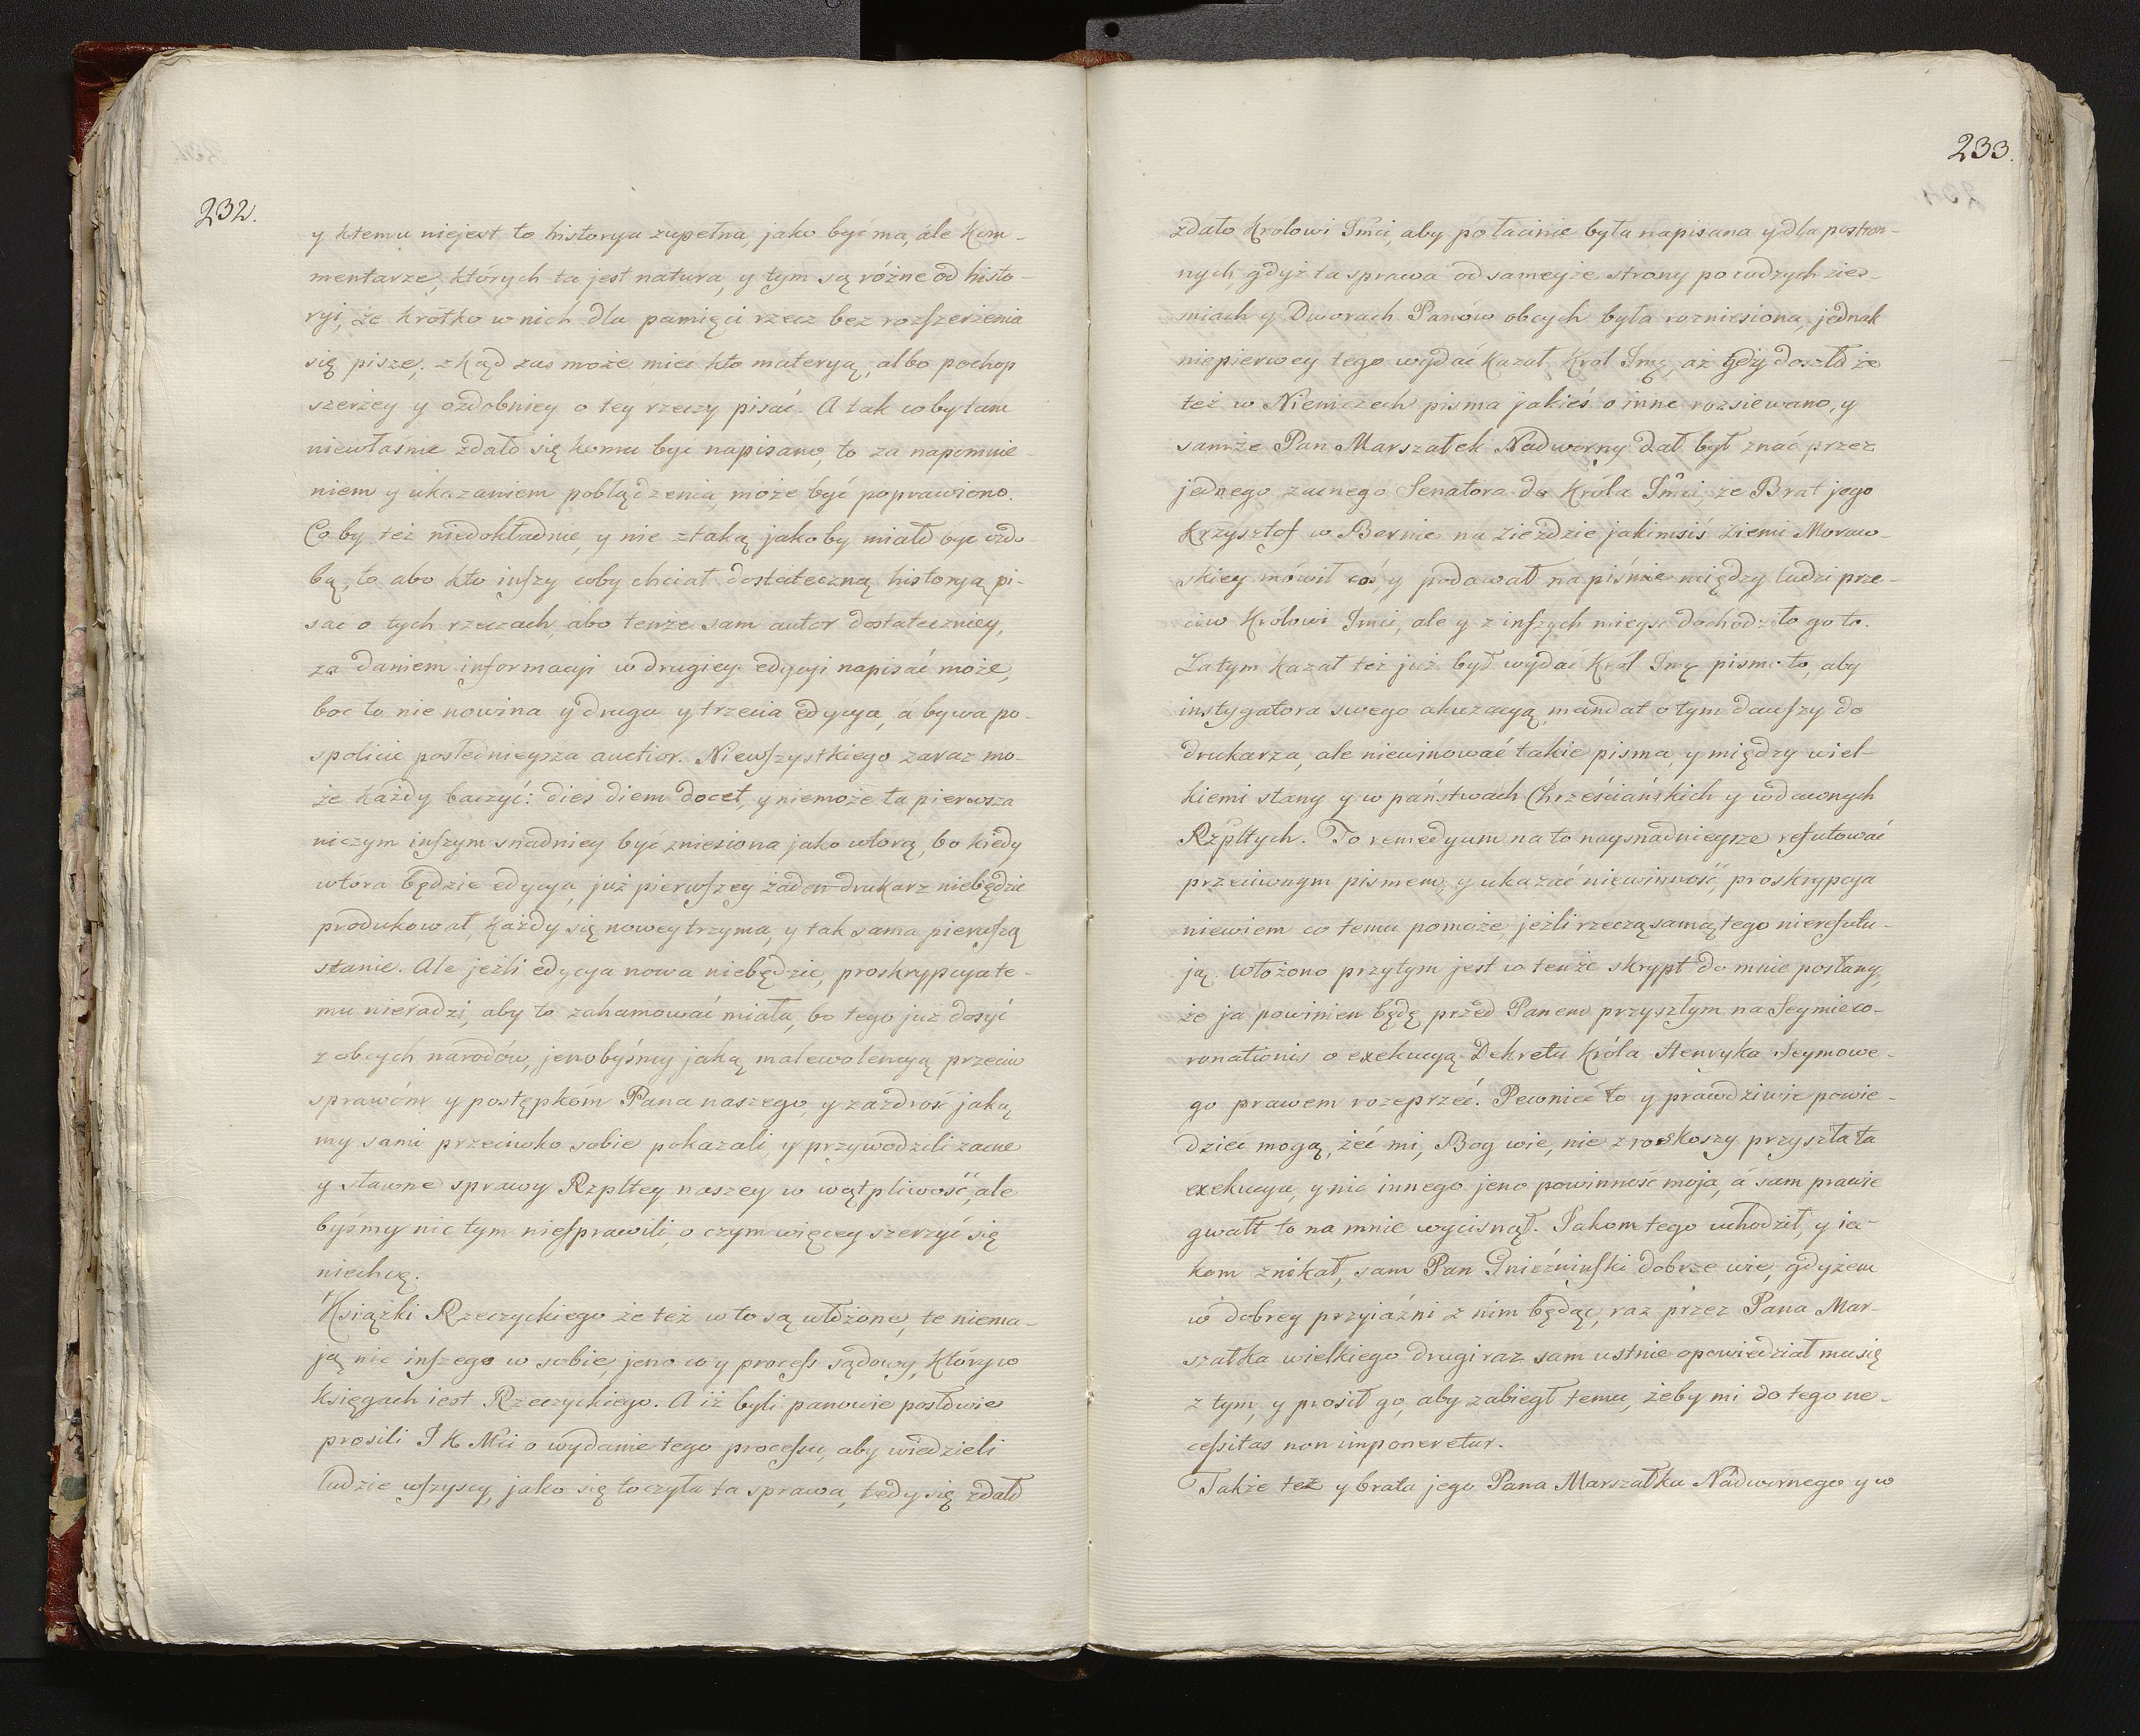 232.
y ktemu niejest to historya zupełna, jako być ma, ále kom-
mentarze, których ta jest natura, y tym są różne od histo-
ryi, że krótko w nich dla pamięci rzecz bez rozszerzenia
się pisze, zkąd zas może miec kto materyą, albo pochop
szerzey y ozdobniey o tey rzeczy pisać. A tak coby tam
niewłaśnie zdało się komu być napisano, to za napomnie-
niem y ukazaniem pobłądzenia, może być poprawiono.
Co by też niedokładnie, y nie z taką jako by miało byc ozdo
bą, to abo kto inszy coby chciał dostateczną historyą pi-
sać o tych rzeczach, abo tenże sam autor dostateczniey,
za daniem informacyi w drugiey edycyi napisać może,
boc to nie nowina y druga y trzecia edycya, á bywa po-
spolicie poslednieysza auctior. Niewszystkiego zaraz mo-
że każdy baczyć: dies diem docet, y niemoże ta pierwsza
niczym inszym snadniey być zniesiona jako wtorą, bo kiedy
wtóra będzie edycya, już pierwszey żaden drukarz niebędzie
produkował, każdy się nowey trzyma, y tak sama pierwszą
stanie. Ale jeżli edycya nowa niebędzie, proskrypcya te-
mu nieradzi, aby to zahamować miała, bo tego już dosyć
z obcych narodów, jenobyśmy jaką malewolencyą przeciw
sprawóm y postępkóm Pana naszego, y zazdrość jaką
my sami przeciwko sobie pokazali y przywodzili zacne
y sławne sprawy Rzpltey naszey w wątpliwość, ale
byśmy nic tym niesprawili, o czym więcey szerzyć się
niechcę.
Książki Rzeczyckiego że też w to są włożone, te niema-
ją nic inszego w sobie, jeno co y process sądowy, który w
księgach iest Rzeczyckiego. A iż byli panowie posłowie
prosili J K Mci o wydanie tego processu, aby wiedzieli
ludzie wszyscy, jako się toczyła ta sprawa, tedy się zdało
233.
zdało Królowi Jmci, aby po łacinie była napisana y dla postron-
nych, gdyż ta sprawa od sameyże strony po cudzych zie-
miach y Dworach Panów obcych była rozniesiona, jednak
niepierwey tego wydać kazał Krol Jmć, aż gdy doszło że
też w Niemczech pisma jakieś o inne rozsiewano, y
samże Pan Marszałek Nadworny dał był znać przez
jednego zacnego Senatora do Króla Jmci, że Brat jego
Krzysztof w Bernie na zieździe jakimsiś ziemi Moraw-
skiey mówił coś, y podawał na piśmie między ludzi prze-
ciw Królowi Jmci, ale y z inszych mieysc dochodziło go to.
Zatym kazał też już był wydać Król Jmć pismo to, aby
instygatora swego akuzacyą, mandat o tym dawszy do
drukarza, ale niewinować takie pisma, y między wiel-
kiemi stany y w państwach Chrześciańskich y w dawnych
Rzpltych. To remedyum na to naysnadnieysze refutować
przeciwnym pismem, y ukazać niewinność, proskrypcya
niewiem co temu pomoże, jeżli rzeczą samą tego nierefutu-
ją. Włożono przytym jest w tenże skrypt do mnie posłany,
że ja powinien będę przed Panem przyszłym na Seymie co-
ronationis o exekucyą Dekretu Króla Henryka Seymowe-
go prawem rozeprzeć. Pewnieć to y prawdziwie powie-
dzieć mogą, żeć mi, Bog wie, nie z roskoszy przyszła ta
exekucya, y nic innego jeno powinność moja, á sam prawie
gwałt to na mnie wycisnął. Jakom tego uchodził, y ja-
kom znikał, sam Pan Gnieźnieński dobrze wie, gdyżem
w dobrey przyjaźni z nim będąc, raz przez Pana Mar-
szałka wielkiego drugi raz sam ustnie opowiedział mu się
z tym, y prosił go, aby zabiegł temu, żeby mi do tego ne-
cessitas non imponeretur.
Także też y brata jego Pana Marszałka Nadwornego y w